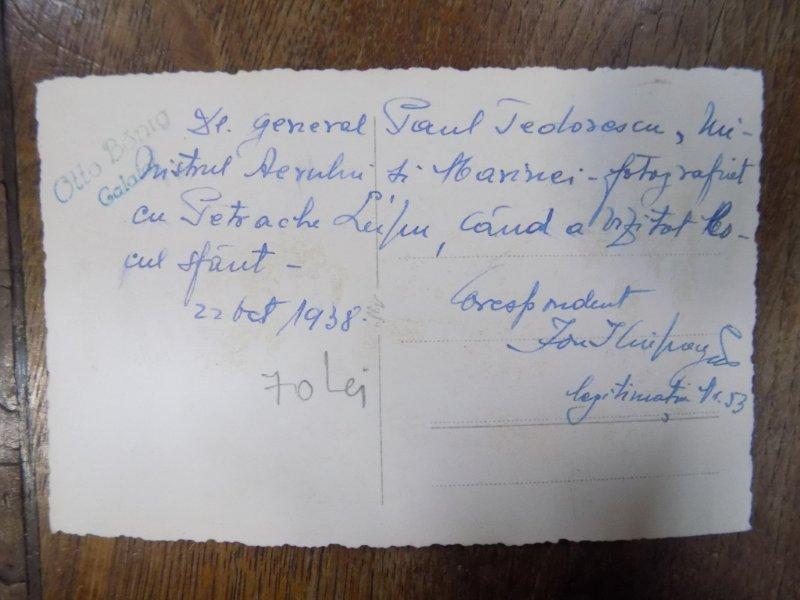 Otto Bönig
Galați
Dl. general Paul Tedorescu, Mi-
nistrul Aerului și Marinei - fotografiat
cu Petrache Lupu, când a vizitat lo-
cul sfânt -
22 oct 1938.
Corespondent
Ion
legitimația Nr. 53
70 Lei